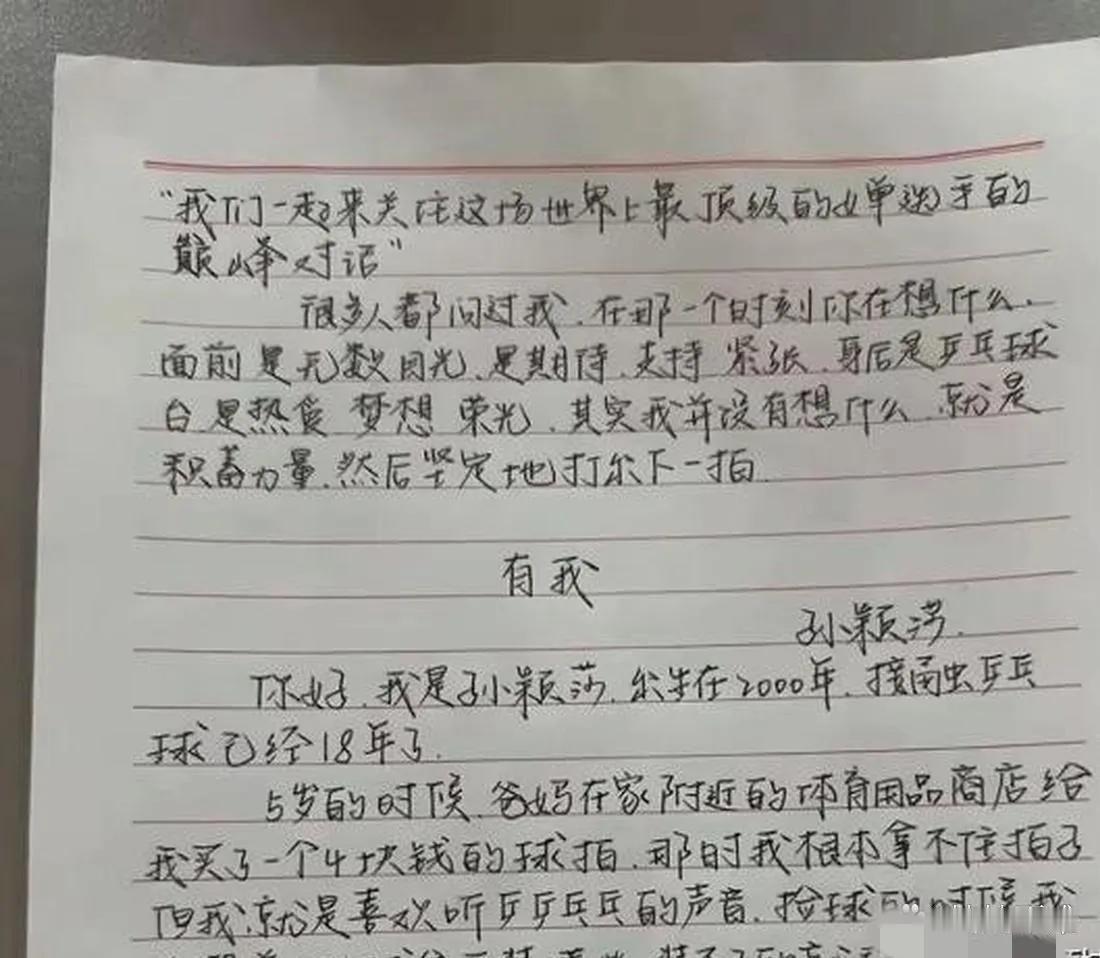 “我们一起来关注这场世界上最顶级的女单选手的
巅峰对话”
很多人都问过我.在那一个时刻你在想什么.
面前是无数目光.是期待.支持 紧张.身后是乒乓球
台是热爱 梦想 荣光.其实我并没有想什么.就是
积蓄力量.然后坚定地打出下一拍.
有我
孙颖莎.
你好.我是孙颖莎.出生在2000年.接触乒乓
球已经18年了.
5岁的时候.爸妈在家附近的体育用品商店给
我买了一个4块钱的球拍.那时我根本拿不住拍子
但我就是喜欢听乒乒乓乓的声音.捡球的时候我